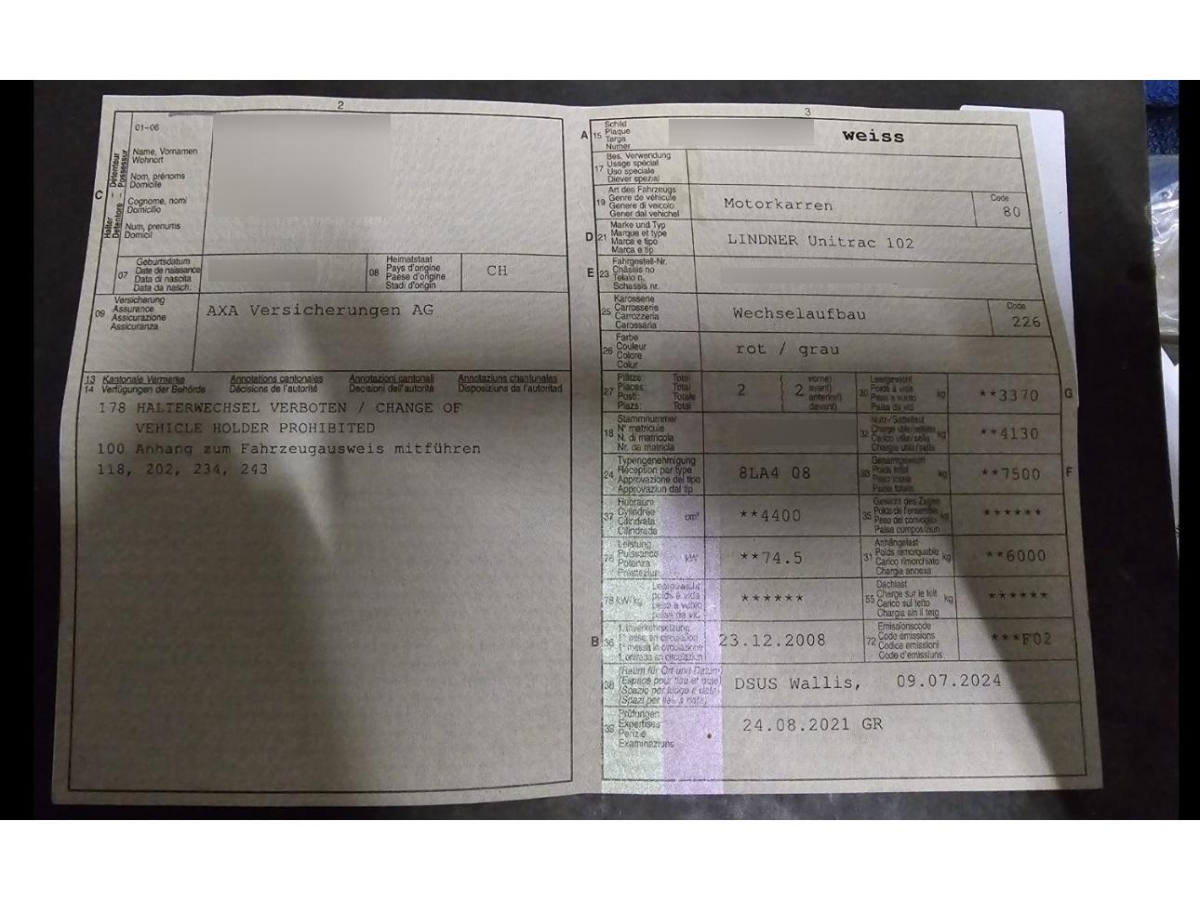 2
01-06
Halter – Détenteur
Detentore – Possessur
C
Name, Vornamen
Wohnort
Nom, prénoms
Domicile
Cognome, nomi
Domicilio
Num, prenums
Domicil
07
Geburtsdatum
Date de naissance
Data di nascita
Data da nasch.
08
Heimatstaat
Pays d'origine
Paese d'origine
Stadi d'origin
CH
09
Versicherung
Assurance
Assicurazione
Assicuranza
AXA Versicherungen AG
13 Kantonale Vermerke Annotations cantonales Annotazioni cantonali Annotaziuns chantunalas
14 Verfügungen der Behörde Décisions de l'autorité Decisioni dell'autorità Disposiziuns da l'autoritad
178 HALTERWECHSEL VERBOTEN / CHANGE OF
VEHICLE HOLDER PROHIBITED
100 Anhang zum Fahrzeugausweis mitführen
118, 202, 234, 243
3
A 15
Schild
Plaque
Targa
Numer
weiss
17
Bes. Verwendung
Usage spécial
Uso speciale
Diever spezial
19
Art des Fahrzeugs
Genre de véhicule
Genere di veicolo
Gener dal vehichel
Motorkarren
Code
80
D 21
Marke und Typ
Marque et type
Marca e tipo
Marca e tip
LINDNER Unitrac 102
E 23
Fahrgestell-Nr.
Châssis no
Telaio n.
Schassis nr.
25
Karosserie
Carrosserie
Carrozzeria
Carossaria
Wechselaufbau
Code
226
26
Farbe
Couleur
Colore
Colur
rot / grau
27
Plätze: Total
Places: Total
Posti: Totale
Plazs: Total
2
2
vorne)
avant)
anteriori)
davant)
30
Leergewicht
Poids à vide
Peso a vuoto
Paisa da vid
kg
**3370
G
18
Stammnummer
N° matricule
N. di matricola
Nr. da matricla
32
Nutz-/Sattellast
Charge utile/sellette
Carico utile/sella
Chargia utila/sella
kg
**4130
24
Typengenehmigung
Réception par type
Approvazione del tipo
Approvaziun dal tip
8LA4 08
33
Gesamtgewicht
Poids total
Peso totale
Paisa totala
kg
**7500
F
37
Hubraum
Cylindrée
Cilindrata
Cilindrada
cm³
**4400
35
Gewicht des Zuges
Poids de l'ensemble
Peso del convoglio
Paisa cumposiziun
kg
******
76
Leistung
Puissance
Potenza
Prestaziun
kW
**74.5
31
Anhängelast
Poids remorquable
Carico rimorchiato
Chargia annexa
kg
**6000
78 kW/kg
Leergewicht
poids à vide
peso a vuoto
paisa da vid
******
55
Dachlast
Charge sur le toit
Carico sul tetto
Chargia sin il tetg
kg
******
B 36
1. Inverkehrsetzung
1re mise en circulation
1a messa in circolazione
1. entrada en circulaziun
23.12.2008
72
Emissionscode
Code émissions
Codice emissioni
Code d'emissiuns
***F02
38
(Raum für Ort und Datum)
(Espace pour lieu et date)
(Spazio per luogo e data)
(Spazi per lieu e data)
DSUS Wallis, 09.07.2024
39
Prüfungen
Expertises
Perizie
Examinaziuns
24.08.2021 GR